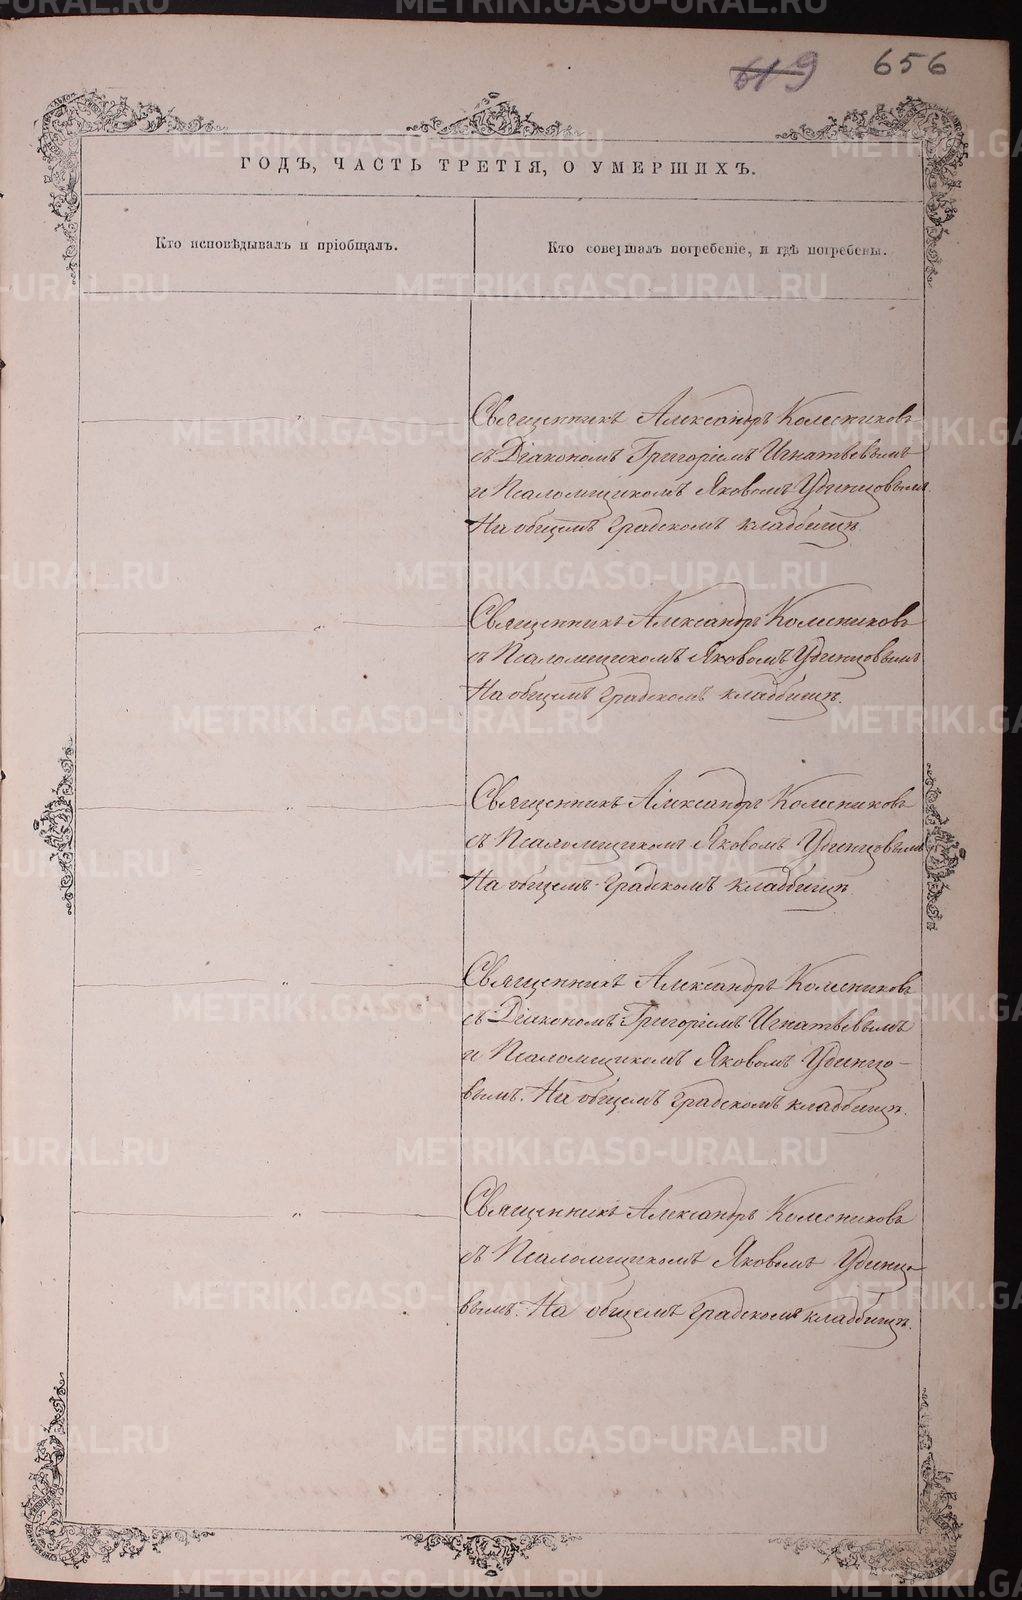 619 656
ГОДЪ, ЧАСТЬ ТРЕТІЯ, О УМЕРШИХЪ.
Кто исповѣдывалъ и пріобщалъ.
Кто совершалъ погребеніе, и гдѣ погребены.
Священникъ Александръ Колесниковъ
съ Діакономъ Григоріемъ Игнатьевымъ
и Псаломщикомъ Яковомъ Удинцовымъ.
На общемъ градскомъ кладбищѣ.
Священникъ Александръ Колесниковъ
съ Псаломщикомъ Яковомъ Удинцовымъ
На общемъ градскомъ кладбищѣ.
Священникъ Александръ Колесниковъ
съ Псаломщикомъ Яковомъ Удинцовымъ
На общемъ градскомъ кладбищѣ.
Священникъ Александръ Колесниковъ
съ Діакономъ Григоріемъ Игнатьевымъ
и Псаломщикомъ Яковомъ Удинцо-
вымъ. На общемъ градскомъ кладбищѣ.
Священникъ Александръ Колесниковъ
съ Псаломщикомъ Яковомъ Удинцо-
вымъ. На общемъ градскомъ кладбищѣ.
METRIKI.GASO-URAL.RU